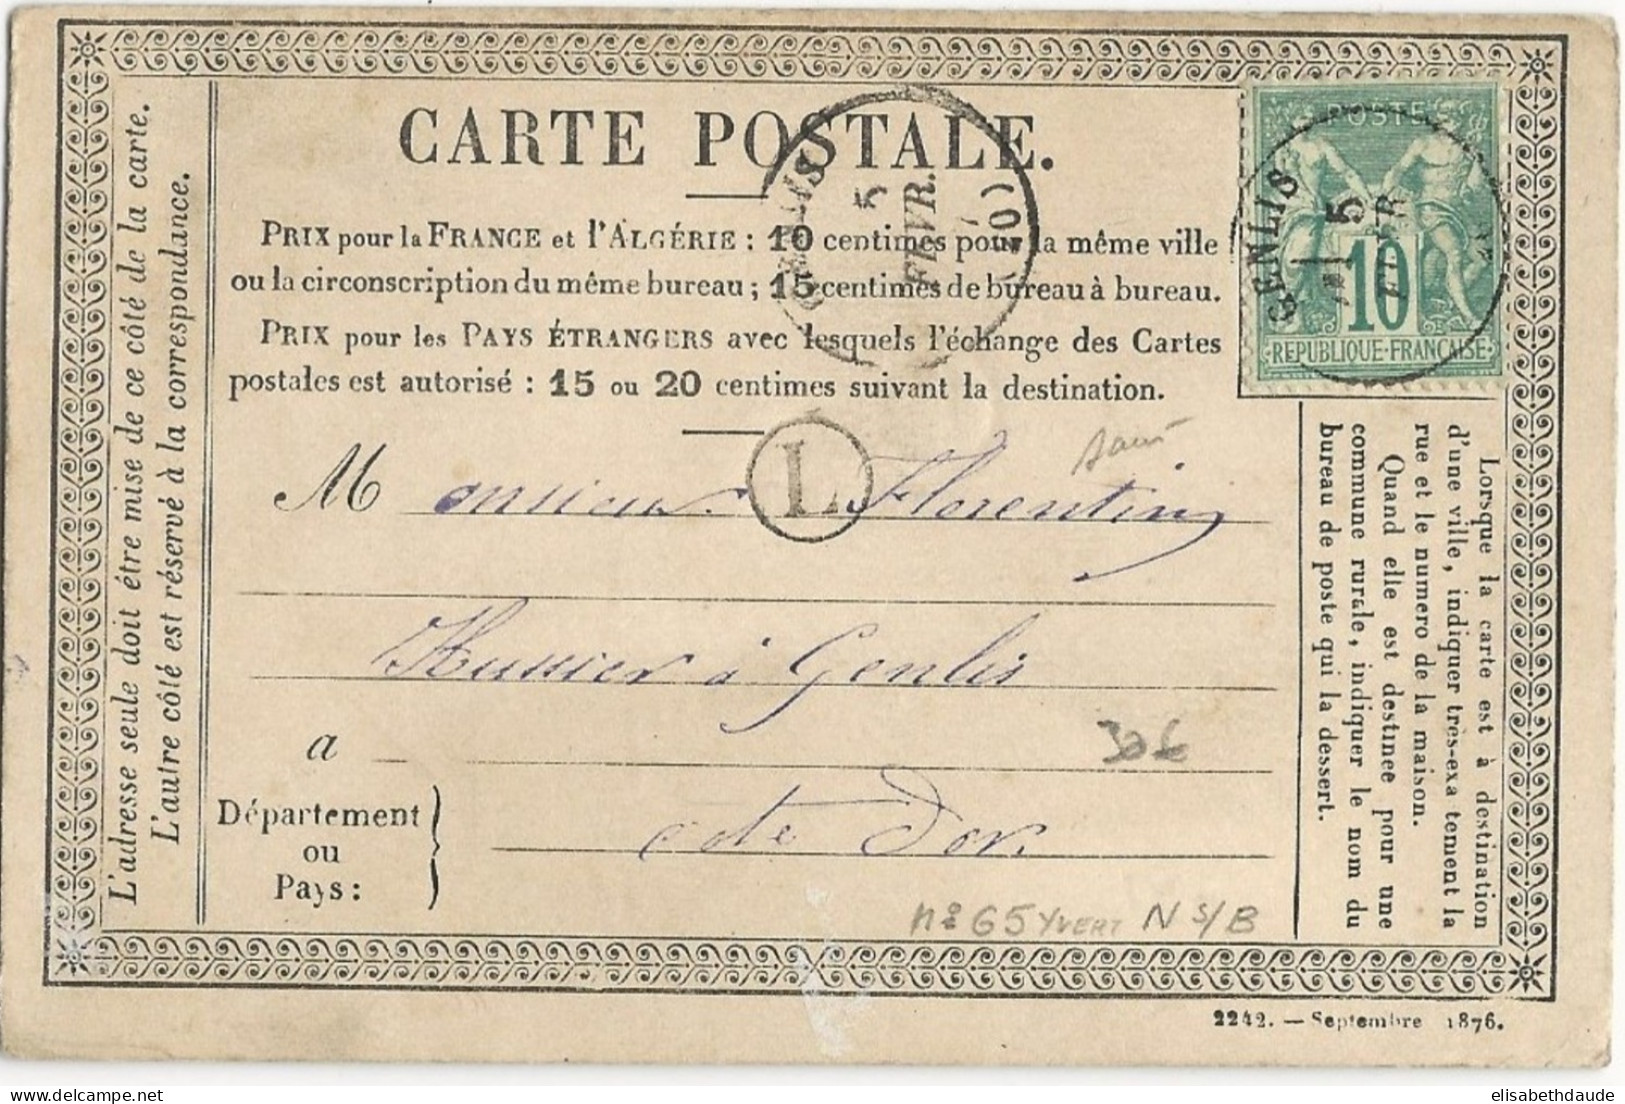 CARTE POSTALE.
PRIX pour la FRANCE et l'ALGÉRIE : 10 centimes pour la même ville
ou la circonscription du même bureau ; 15 centimes de bureau à bureau.
PRIX pour les PAYS ÉTRANGERS avec lesquels l'échange des Cartes
postales est autorisé : 15 ou 20 centimes suivant la destination.
L'adresse seule doit être mise de ce côté de la carte.
L'autre côté est réservé à la correspondance.
GENLIS
5
FEVR.
POSTE
10
REPUBLIQUE-FRANÇAISE
GENLIS
5
L
Monsieur Florentin
Hussier à Genlis
a
30€
Département
ou
Pays :
cote Dor
n° 65 YVERT N S/B
Lorsque la carte est à destination
d'une ville, indiquer très-exa tement la
rue et le numero de la maison.
Quand elle est destinee pour une
commune rurale, indiquer le nom du
bureau de poste qui la dessert.
2242. — Septembre 1876.
elisabethdaude